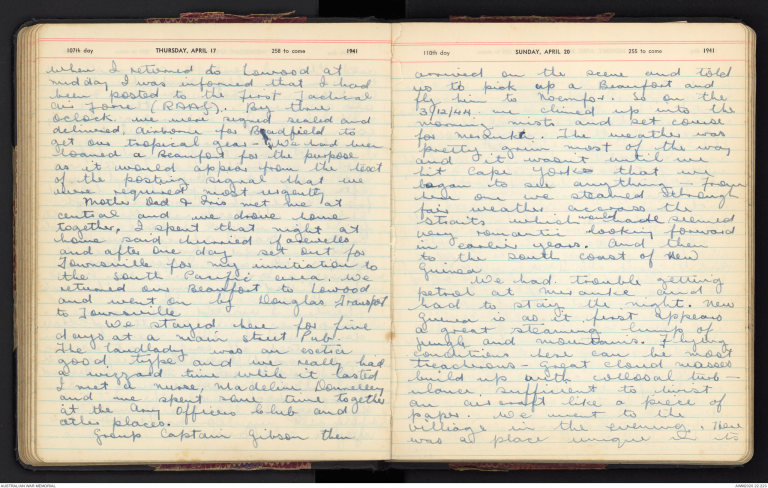 107th day THURSDAY, APRIL 17 258 to come 1941
when I returned to Lowood at
midday I was informed that I had
been posted to the First Tactical
Air Force (RAAF). By three
oclock we were signed sealed and
delivered, airborne for Bradfield to
get our tropical gear - We had been
loaned a Beaufort for the purpose
as it would appear from the text
of the posting signal that we
were required most urgently
Mother Dad & Iris met me at
central and we drove home
together. I spent that night at
home said hurried farewells
and after one day set out for
Townsville for my initiation to
the South Pacific area. We
returned our Beaufort to Lowood
and went on by Douglas Transport
to Townsville
We stayed here for five
days at a main street Pub.
The landlady was an exotic
good type and we really had
a wizzard time while it lasted
I met a nurse, Madeline Donnelley
and we spent some time together
at the Army Officers Club and
other places.
Group Captain Gibson then
110th day SUNDAY, APRIL 20 255 to come 1941
arrived on the scene and told
us to pick up a Beaufort and
fly him to Noemfor. So on the
3/12/44 we climed up into the
morning mists and set course
for . The weather was
pretty grim most of the way
and it wasnt until we
hit Cape York that we
began to see anything - From
here on we steamed through
fair weather accross the
straits which would have seemed
very romantic looking forward
in earlier years. And then
to the south coast of New
Guinea
We had trouble getting
petrol at and
had to stay the night. New
Guinea is as it first appears
a great steaming lump of
jungle and mountains. Flying
conditions here can be most
treacherous - great cloud masses
build up with collosal turb-
ulance, sufficient to twist
an aircraft like a piece of
paper. We went to the
villiage in the evening. There
was a place unique in its
AUSTRALIAN WAR MEMORIAL